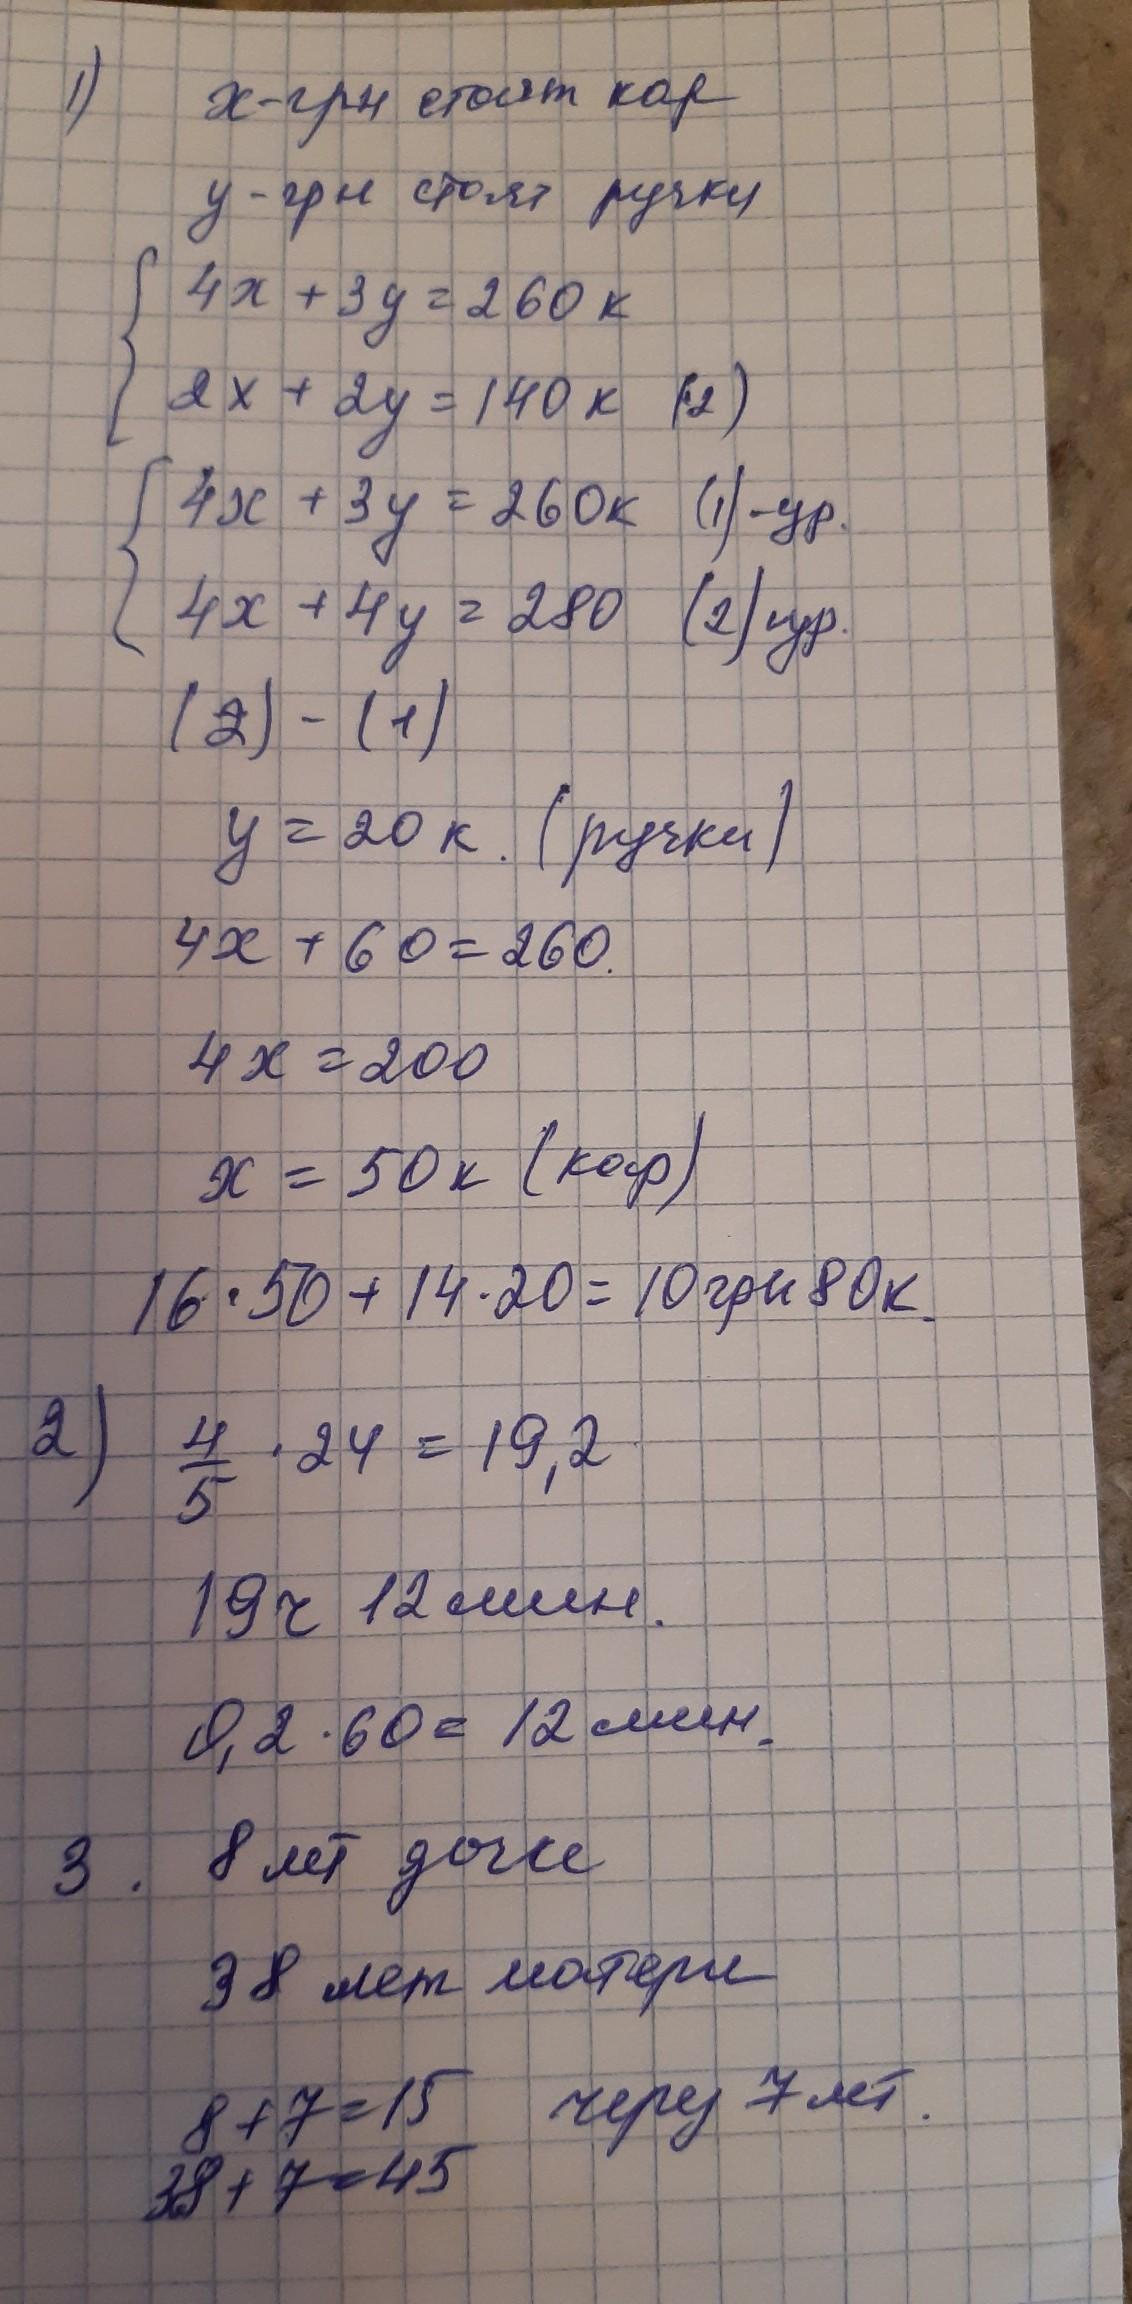 1) х-грн стоят кар
у-грн стоят ручки
4х + 3у = 260к
2х + 2у = 140к (2)
4х + 3у = 260к (1)-ур.
4х + 4у = 280 (2) ур.
(2) - (1)
у = 20к. (ручки)
4х + 60 = 260.
4х = 200
х = 50к (кар)
16·50 + 14·20 = 10грн 80к.
2) 4/5 · 24 = 19,2
19ч 12 мин.
0,2·60 = 12 мин.
3. 8 лет дочке
38 лет матери
8+7=15 через 7 лет.
38+7=45